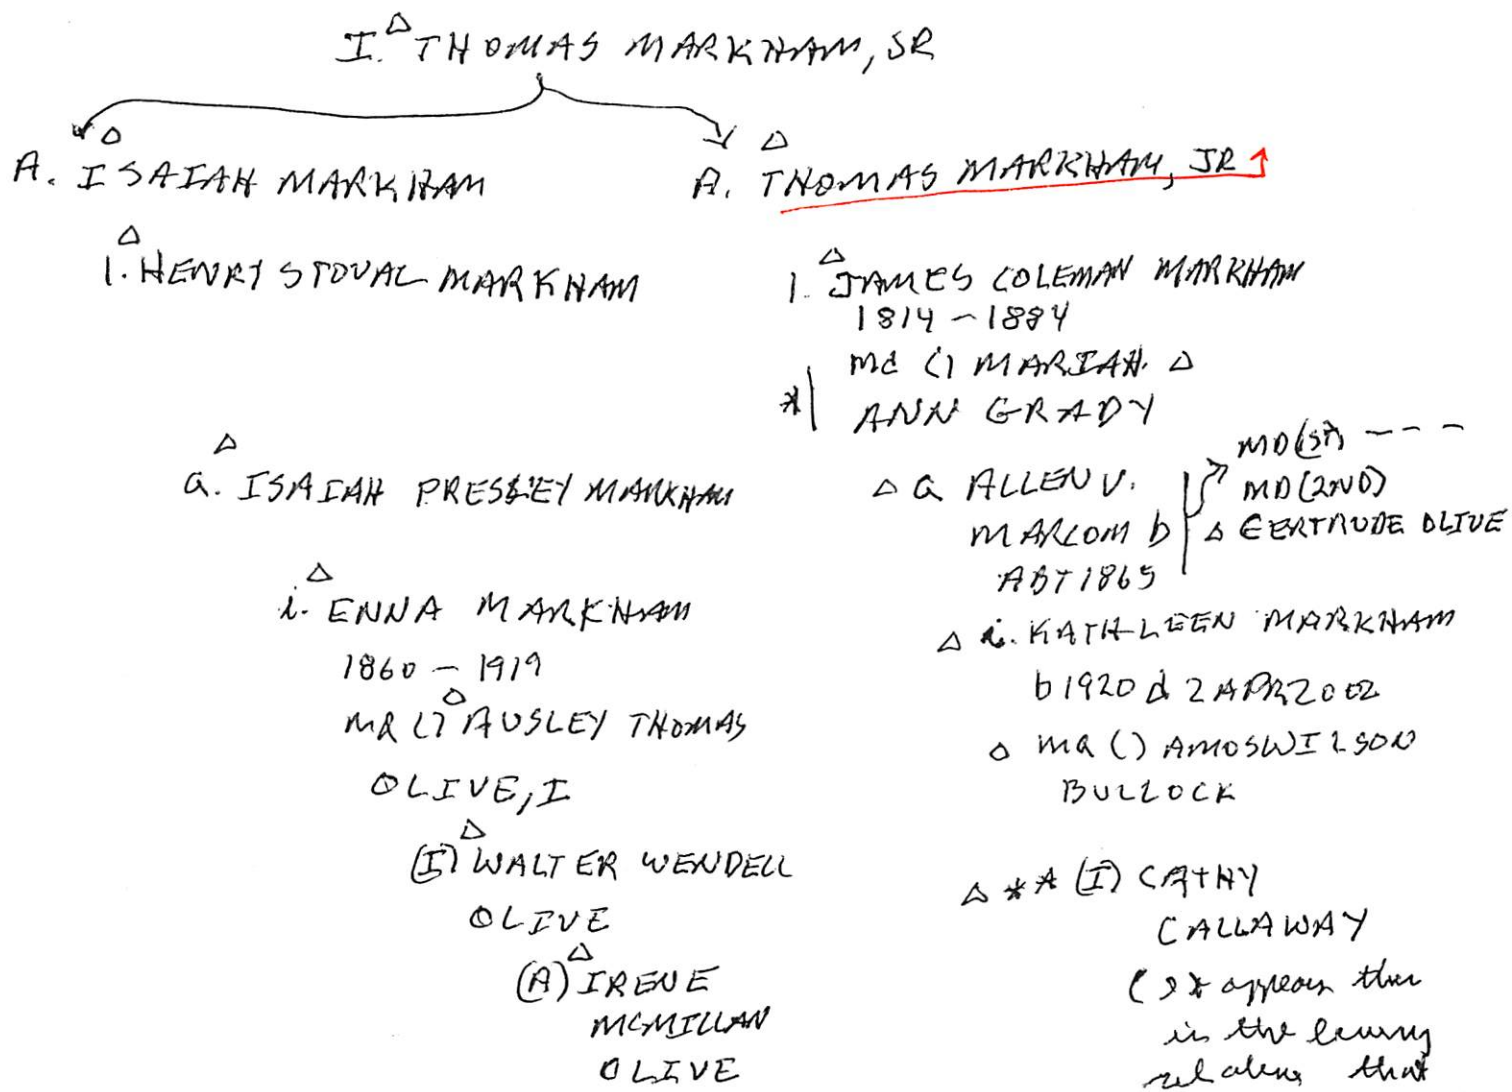 I. THOMAS MARKHAM, SR
A. ISAIAH MARKHAM
1. HENRY STOVAL MARKHAM
a. ISAIAH PRESLEY MARKHAM
i. ENNA MARKHAM
1860 - 1919
MR () AUSLEY THOMAS
OLIVE, I
(I) WALTER WENDELL
OLIVE
(A) IRENE
MCMILLAN
OLIVE
A. THOMAS MARKHAM, JR
1. JAMES COLEMAN MARKHAM
1814 - 1884
md () MARIAH
* ANN GRADY
a ALLEN V.
MARCOM b
ABT 1865
MD (1ST) - - -
MD (2ND)
GERTRUDE OLIVE
i. KATHLEEN MARKHAM
b 1920 d 2 APR 2002
MR () AMOS WILSON
BULLOCK
** (I) CATHY
CALLAWAY
( It appears this
is the living
relative that